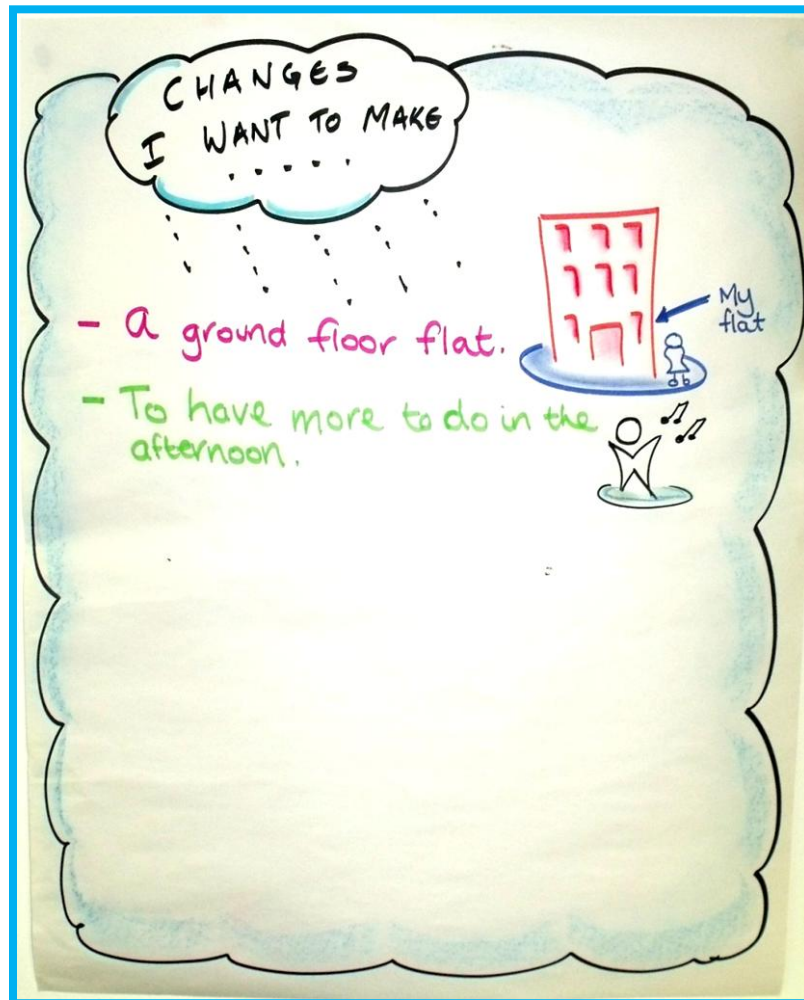 CHANGES
I WANT TO MAKE
.....
- A ground floor flat.
My
flat
- To have more to do in the
afternoon.